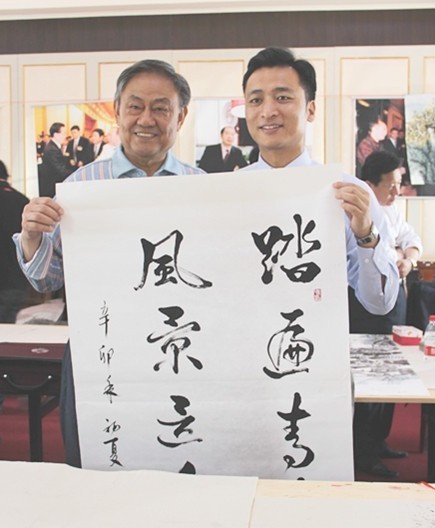 踏遍青
風景这
辛卯年初夏